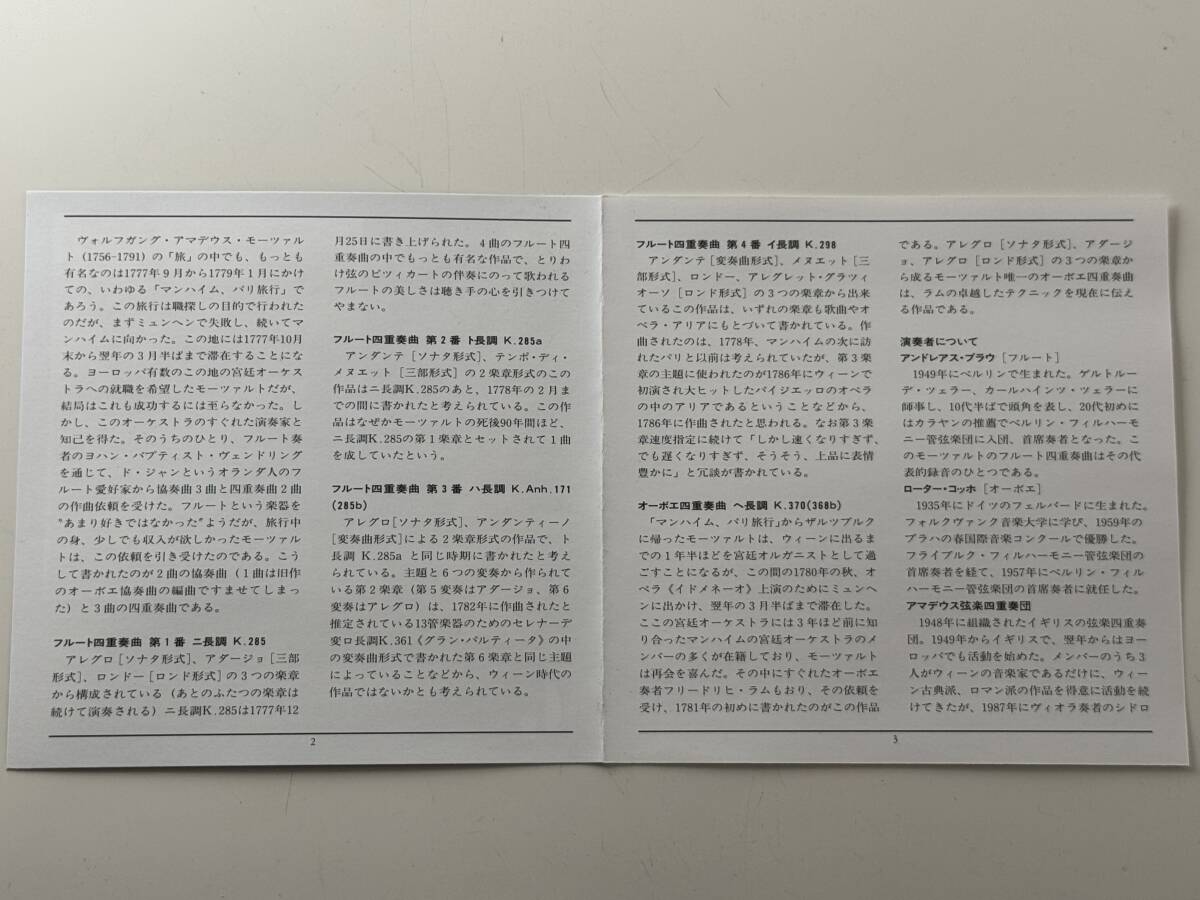 ヴォルフガング・アマデウス・モーツァル
ト (1756-1791) の「旅」の中でも、もっとも
有名なのは1777年９月から1779年１月にかけ
ての、いわゆる「マンハイム、パリ旅行」で
あろう。この旅行は職探しの目的で行われた
のだが、まずミュンヘンで失敗し、続いてマ
ンハイムに向かった。この地には1777年10月
末から翌年の３月半ばまで滞在することにな
る。ヨーロッパ有数のこの地の宮廷オーケス
トラへの就職を希望したモーツァルトだが、
結局はこれも成功するには至らなかった。し
かし、このオーケストラのすぐれた演奏家と
知己を得た。そのうちのひとり、フルート奏
者のヨハン・バプティスト・ヴェンドリング
を通じて、ド・ジャンというオランダ人のフ
ルート愛好家から協奏曲３曲と四重奏曲２曲
の作曲依頼を受けた。フルートという楽器を
“あまり好きではなかった”ようだが、旅行中
の身、少しでも収入が欲しかったモーツァル
トは、この依頼を引き受けたのである。こう
して書かれたのが２曲の協奏曲（１曲は旧作
のオーボエ協奏曲の編曲ですませてしまっ
た）と３曲の四重奏曲である。
フルート四重奏曲 第１番 ニ長調 K.285
アレグロ［ソナタ形式］、アダージョ［三部
形式］、ロンドー［ロンド形式］の３つの楽章
から構成されている（あとのふたつの楽章は
続けて演奏される）ニ長調K.285は1777年12
月25日に書き上げられた。４曲のフルート四
重奏曲の中でもっとも有名な作品で、とりわ
け弦のピツィカートの伴奏にのって歌われる
フルートの美しさは聴き手の心を引きつけて
やまない。
フルート四重奏曲 第２番 ト長調 K.285a
アンダンテ［ソナタ形式］、テンポ・ディ・
メヌエット［三部形式］の２楽章形式のこの
作品はニ長調K.285のあと、1778年の２月ま
での間に書かれたと考えられている。この作
品はなぜかモーツァルトの死後90年間ほど、
ニ長調K.285の第１楽章とセットされて１曲
を成していたという。
フルート四重奏曲 第３番 ハ長調 K.Anh.171
(285b)
アレグロ［ソナタ形式］、アンダンティーノ
［変奏曲形式］による２楽章形式の作品で、ト
長調 K.285a と同じ時期に書かれたと考え
られている。主題と６つの変奏から作られて
いる第２楽章（第５変奏はアダージョ、第６
変奏はアレグロ）は、1782年に作曲されたと
推定されている13管楽器のためのセレナーデ
変ロ長調K.361《グラン・パルティータ》の中
の変奏曲形式で書かれた第６楽章と同じ主題
によっていることなどから、ウィーン時代の
作品ではないかとも考えられている。
2
フルート四重奏曲 第４番 イ長調 K.298
アンダンテ［変奏曲形式］、メヌエット［三
部形式］、ロンドー、アレグレット・グラツィ
オーソ［ロンド形式］の３つの楽章から出来
ているこの作品は、いずれの楽章も歌曲やオ
ペラ・アリアにもとづいて書かれている。作
曲されたのは、1778年、マンハイムの次に訪
れたパリと以前は考えられていたが、第３楽
章の主題に使われたのが1786年にウィーンで
初演され大ヒットしたパイジエッロのオペラ
の中のアリアであるということなどから、
1786年に作曲されたと思われる。なお第３楽
章速度指定に続けて「しかし速くなりすぎず、
でも遅くなりすぎず、そうそう、上品に表情
豊かに」と冗談が書かれている。
オーボエ四重奏曲 ヘ長調 K.370(368b)
「マンハイム、パリ旅行」からザルツブルク
に帰ったモーツァルトは、ウィーンに出るまで
の１年半ほどを宮廷オルガニストとして過
ごすことになるが、この間の1780年の秋、オ
ペラ《イドメネーオ》上演のためにミュンヘ
ンに出かけ、翌年の３月半ばまで滞在した。
ここの宮廷オーケストラには３年ほど前に知
り合ったマンハイムの宮廷オーケストラのメ
ンバーの多くが在籍しており、モーツァルト
は再会を喜んだ。その中にすぐれたオーボエ
奏者フリードリヒ・ラムもおり、その依頼を
受け、1781年の初めに書かれたのがこの作品
である。アレグロ［ソナタ形式］、アダージ
ョ、アレグロ［ロンド形式］の３つの楽章か
ら成るモーツァルト唯一のオーボエ四重奏曲
は、ラムの卓越したテクニックを現在に伝え
る作品である。
演奏者について
アンドレアス・ブラウ［フルート］
1949年にベルリンで生まれた。ゲルトルー
デ・ツェラー、カールハインツ・ツェラーに
師事し、10代半ばで頭角を表し、20代初めに
はカラヤンの推薦でベルリン・フィルハーモ
ニー管弦楽団に入団、首席奏者となった。こ
のモーツァルトのフルート四重奏曲はその代
表的録音のひとつである。
ローター・コッホ［オーボエ］
1935年にドイツのフェルバードに生まれた。
フォルクヴァンク音楽大学に学び、1959年の
プラハの春国際音楽コンクールで優勝した。
フライブルク・フィルハーモニー管弦楽団の
首席奏者を経て、1957年にベルリン・フィル
ハーモニー管弦楽団の首席奏者に就任した。
アマデウス弦楽四重奏団
1948年に組織されたイギリスの弦楽四重奏
団。1949年からイギリスで、翌年からはヨー
ロッパでも活動を始めた。メンバーのうち３
人がウィーンの音楽家であるだけに、ウィー
ン古典派、ロマン派の作品を得意に活動を続
けてきたが、1987年にヴィオラ奏者のシドロ
3